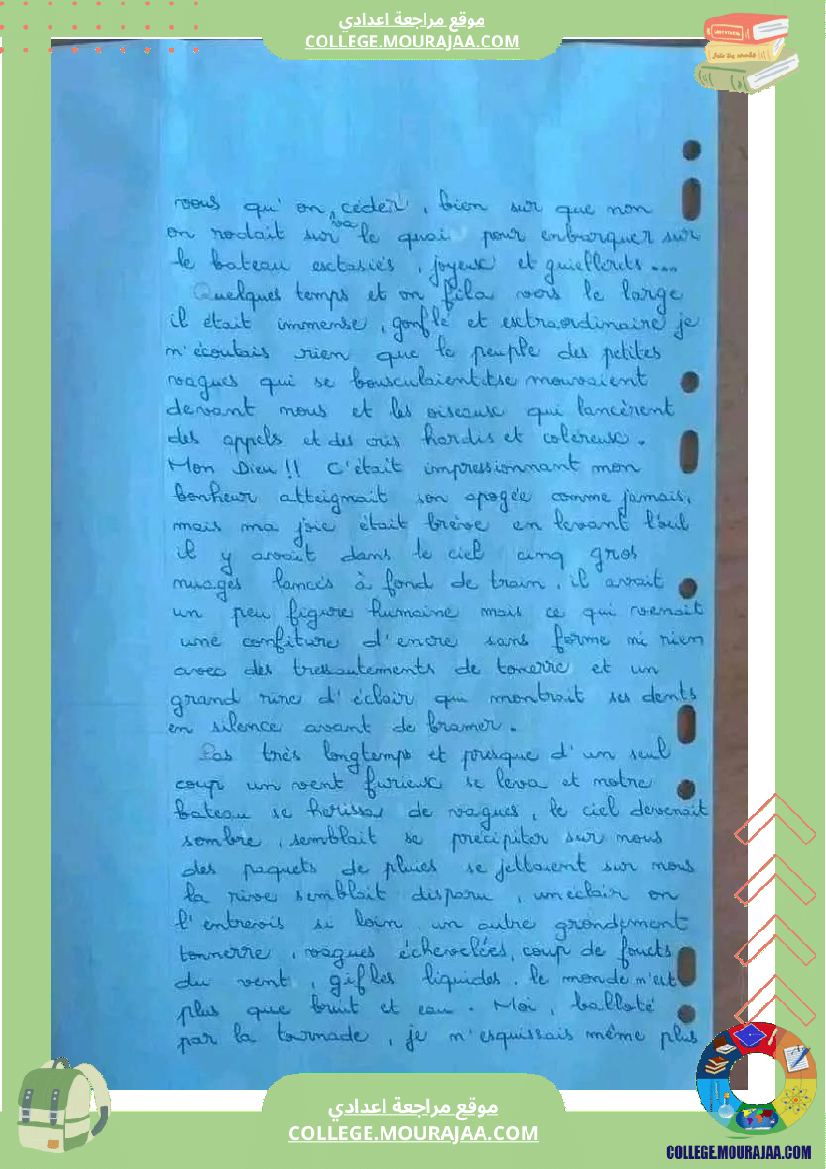 موقع مراجعة اعدادي
COLLEGE.MOURAJAA.COM
vous qu'on va céder, bien sur que non
on rodait sur le quai pour enbarquer sur
le bateau exctasiés, joyeux et guiellerets...
Quelques temps et on fila vers le large
il était immense, gonflé et exctraordinaire je
n'écoutais rien que le peuple des petites
vagues qui se bousculaient et se mouvaient
devant nous et les oiseaux qui lancèrent
des appels et des cris hardis et coléreux.
Mon Dieu!! C'était impressionnant mon
bonheur atteignait son apogée comme jamais,
mais ma joie était brève en levant l'œil
il y avait dans le ciel cinq gros
nuages lancés à fond de train, il avait
un peu figure humaine mais ce qui venait
une confiture d'encre sans forme ni rien
avec des tressautements de tonnerre et un
grand rire d'éclair qui montrait ses dents
en silence avant de bramer.
Pas très longtemps et presque d'un seul
coup un vent furieux se leva et notre
bateau se herissa de vagues, le ciel devenait
sombre, semblait se précipiter sur nous
des paquets de pluies se jettaient sur nous
la rive semblait disparu, un éclair on
l'entrevois si loin un autre grondement
tonnerre, vagues échevelées, coup de fouets
du vent, gifles liquides. le monde n'est
plus que bruit et eau. Moi, balloté
par la tournade, je n'esquissais même plus
موقع مراجعة اعدادي
COLLEGE.MOURAJAA.COM
COLLEGE.MOURAJAA.COM